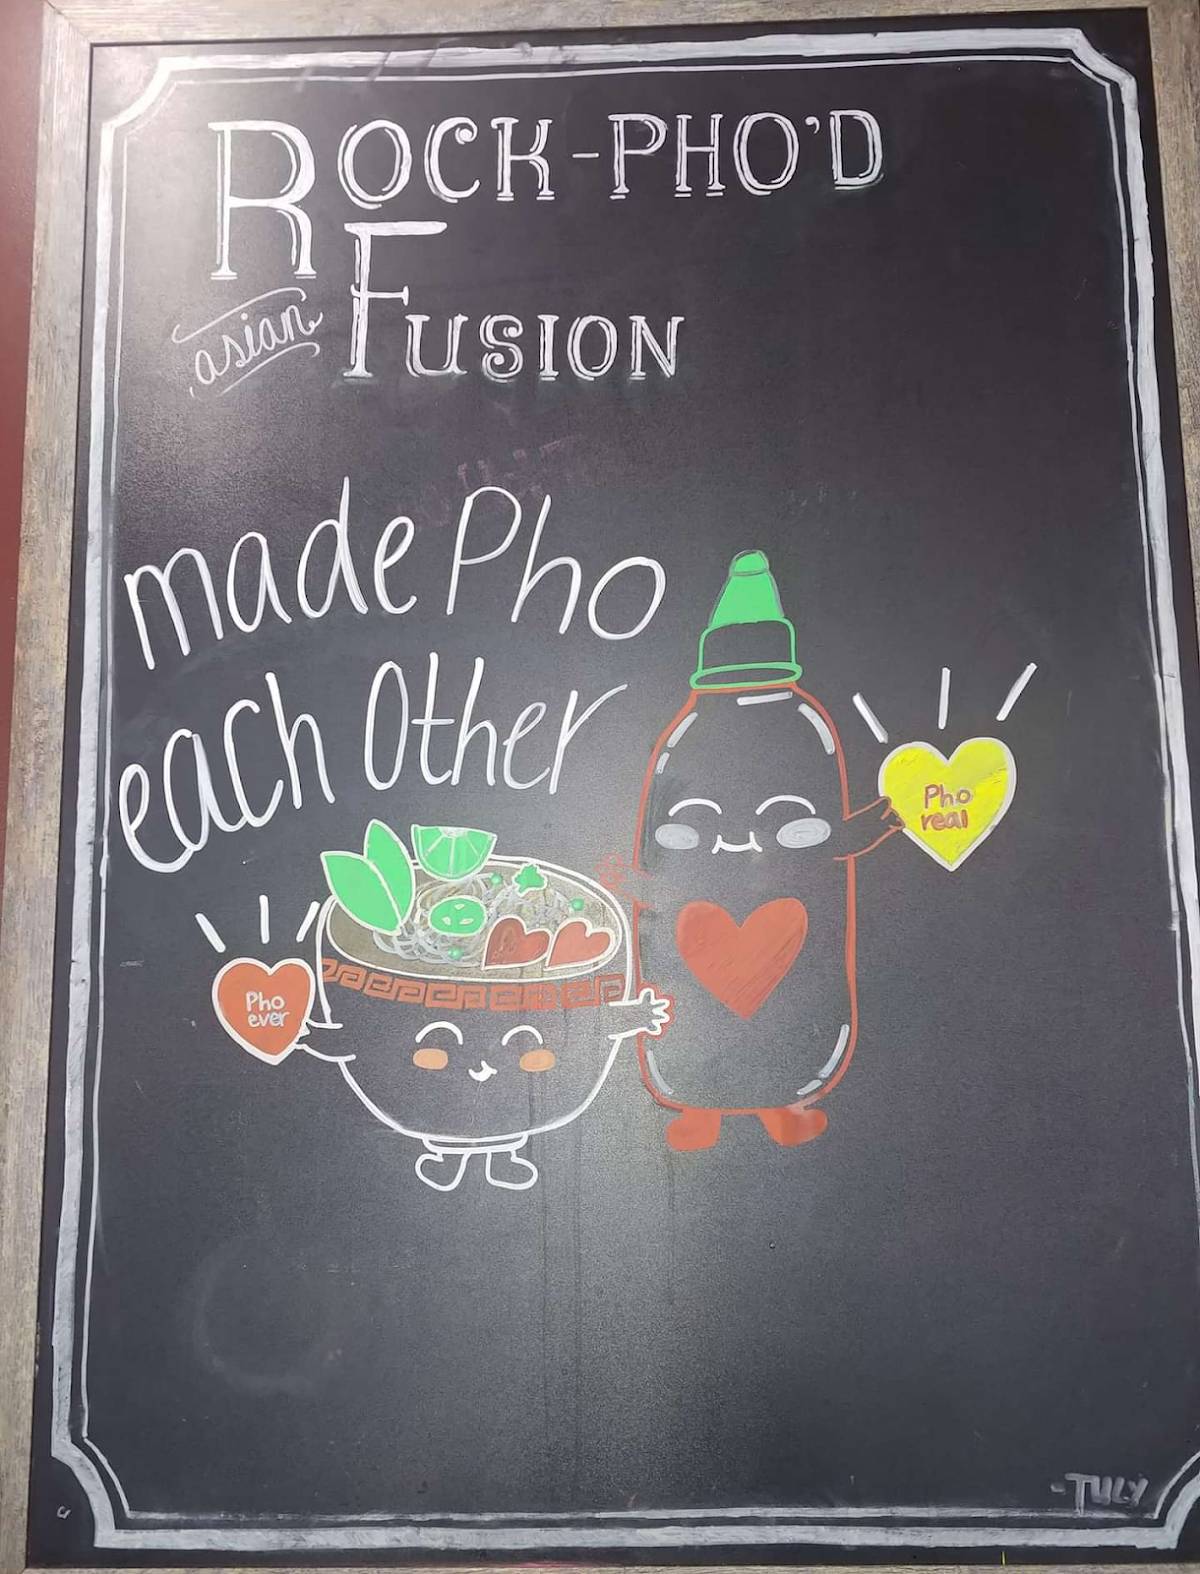 ROCK-PHO'D
asian FUSION
made Pho
each Other
Pho
real
Pho
ever
-TULY